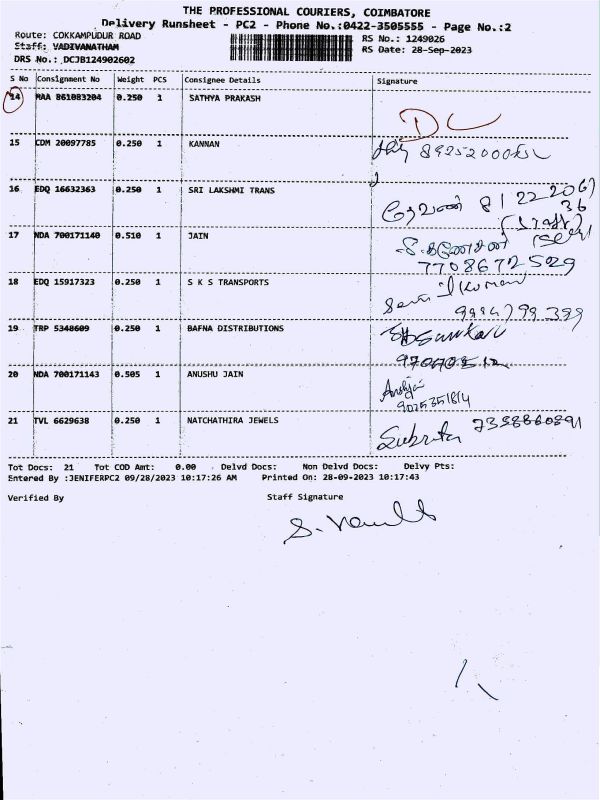 THE PROFESSIONAL COURIERS, COIMBATORE
Delivery Runsheet - PC2 - Phone No.:0422-3505555 - Page No.:2
Route: COKKAMPUDUR ROAD RS No.: 1249026
Staff: VADIVANATHAM RS Date: 28-Sep-2023
DRS No.: DCJB124902602
S No Consignment No Weight PCS Consignee Details Signature
14 MAA 861083204 0.250 1 SATHYA PRAKASH
DL
15 CDM 20097785 0.250 1 KANNAN
16 EDQ 16632363 0.250 1 SRI LAKSHMI TRANS
(Staff)
17 NDA 700171140 0.510 1 JAIN
7708672529
18 EDQ 15917323 0.250 1 S K S TRANSPORTS
19 TRP 5348609 0.250 1 BAFNA DISTRIBUTIONS
20 NDA 700171143 0.505 1 ANUSHU JAIN
9025351814
21 TVL 6629638 0.250 1 NATCHATHIRA JEWELS
7358860891
Tot Docs: 21 Tot COD Amt: 0.00 Delvd Docs: Non Delvd Docs: Delvy Pts:
Entered By :JENIFERPC2 09/28/2023 10:17:26 AM Printed On: 28-09-2023 10:17:43
Verified By Staff Signature